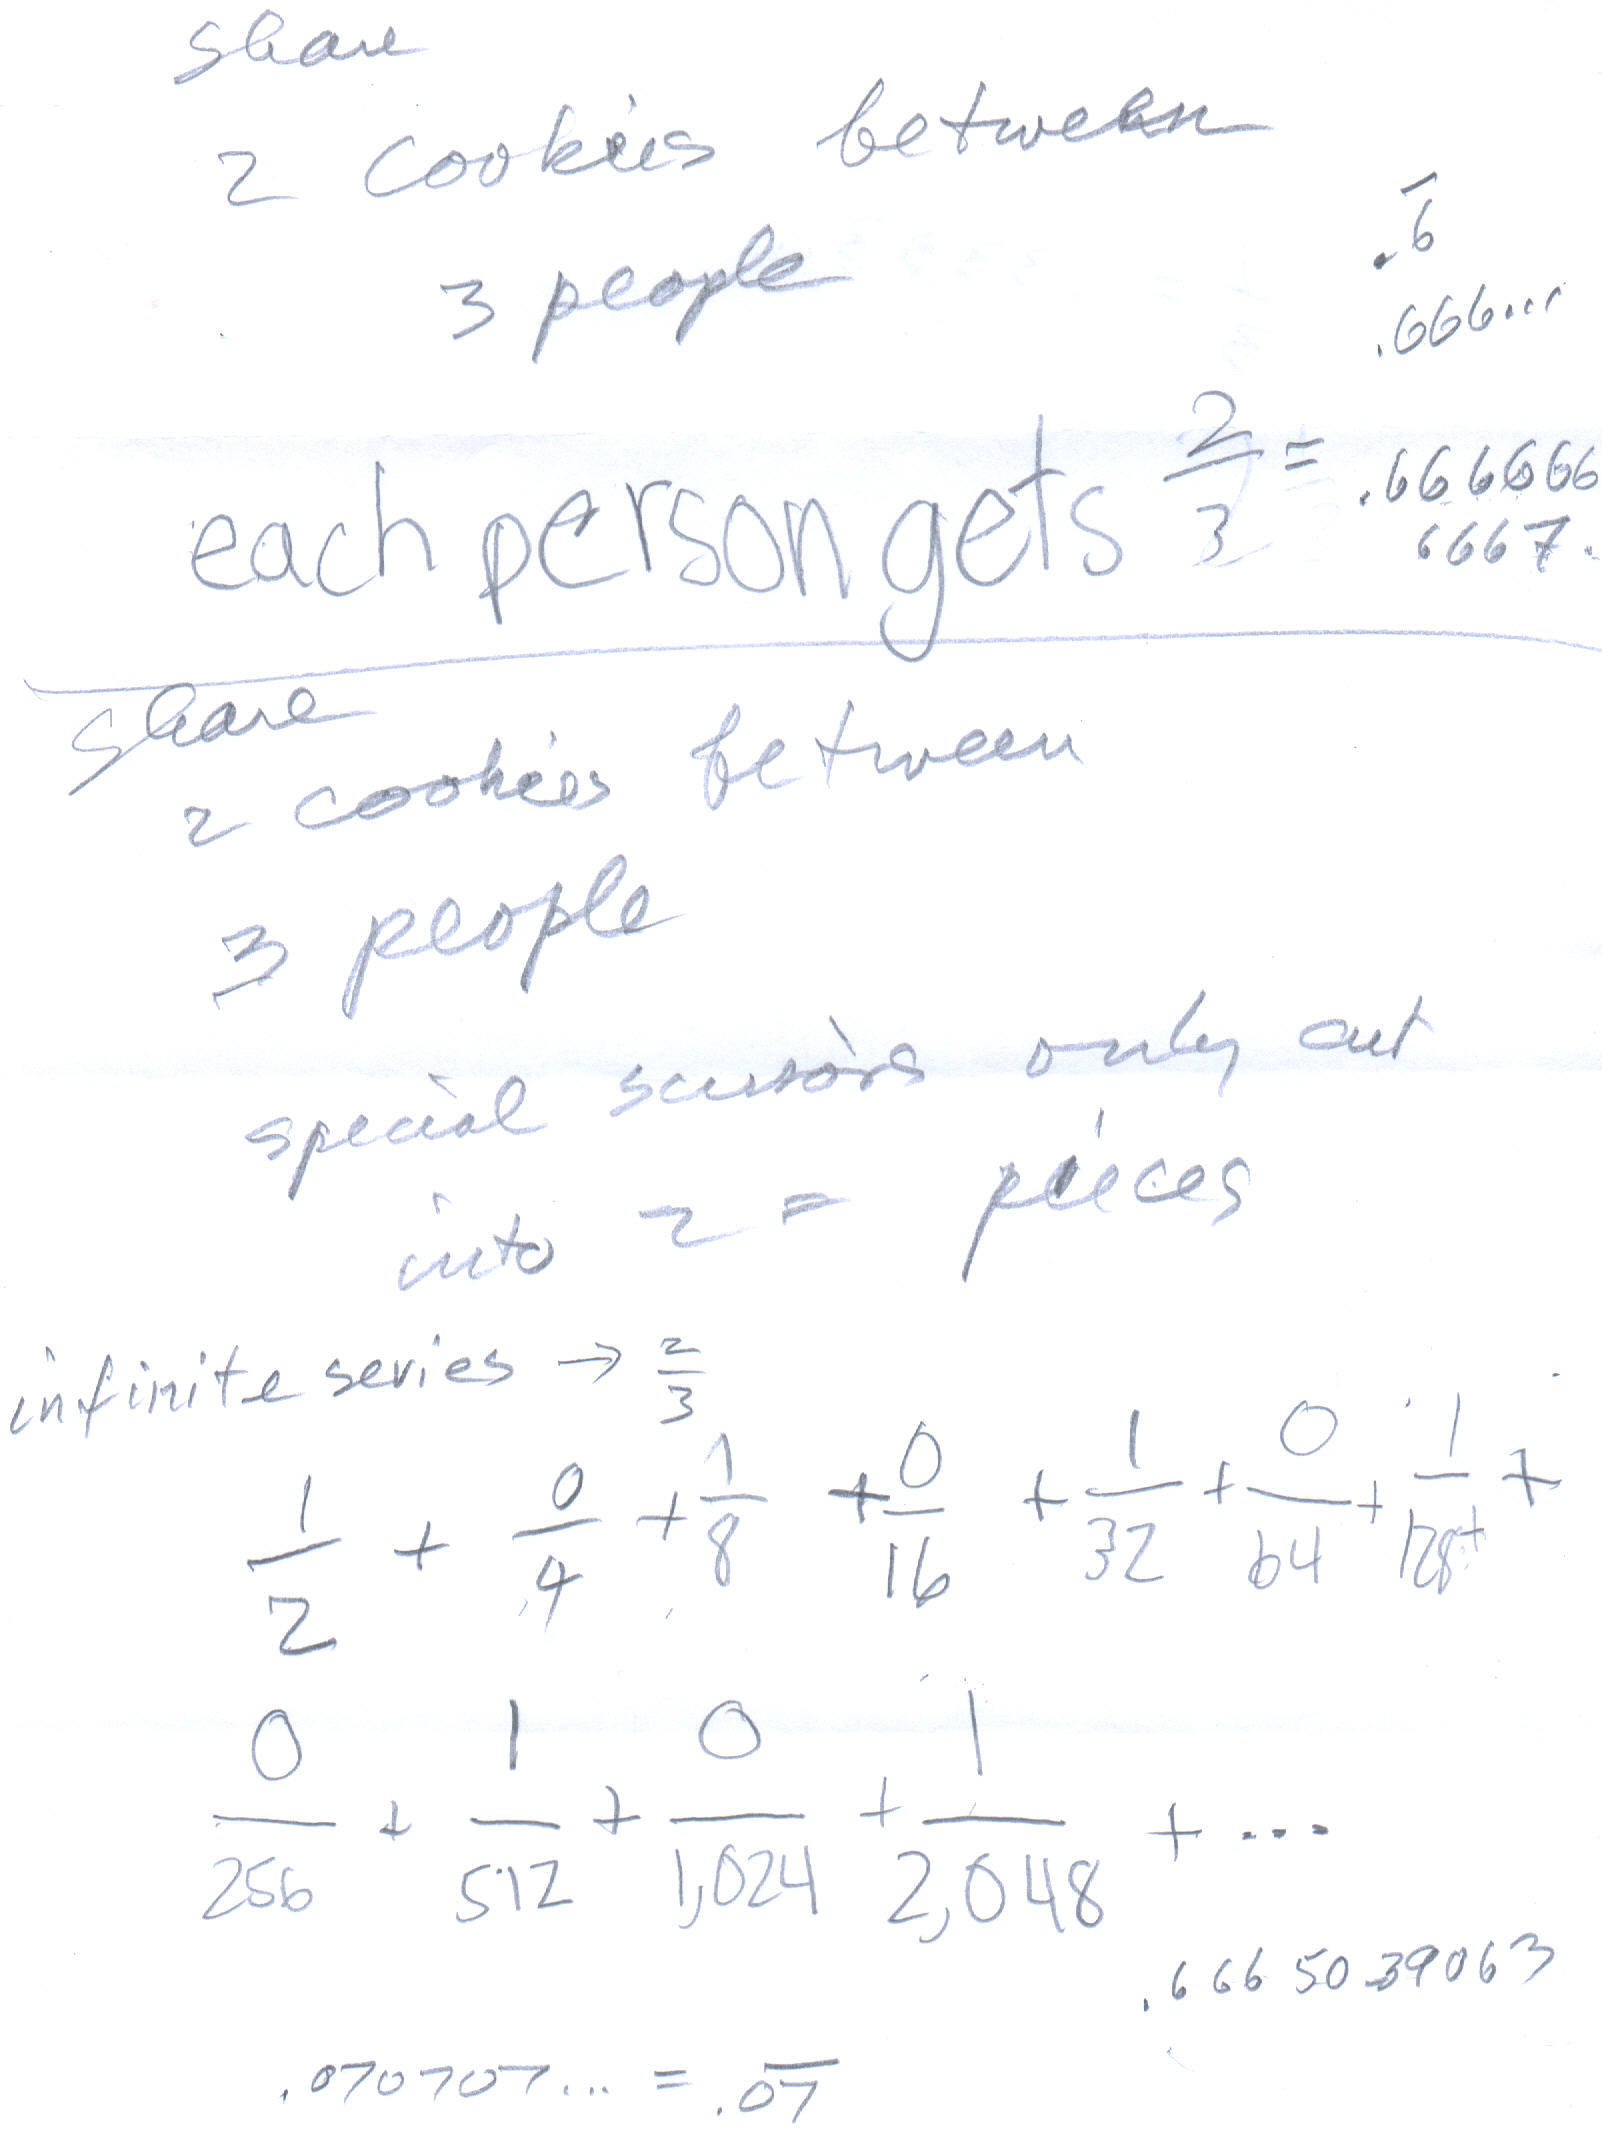 share
2 cookies between
3 people
.6̅
.666...
each person gets 2/3 = .666666
6667.
share
2 cookies between
3 people
special scissors only cut
into 2 = pieces
infinite series → 2/3
1/2 + 0/4 + 1/8 + 0/16 + 1/32 + 0/64 + 1/128 +
0/256 + 1/512 + 0/1,024 + 1/2,048 + ...
.6665039063
.070707... = .0̅7̅